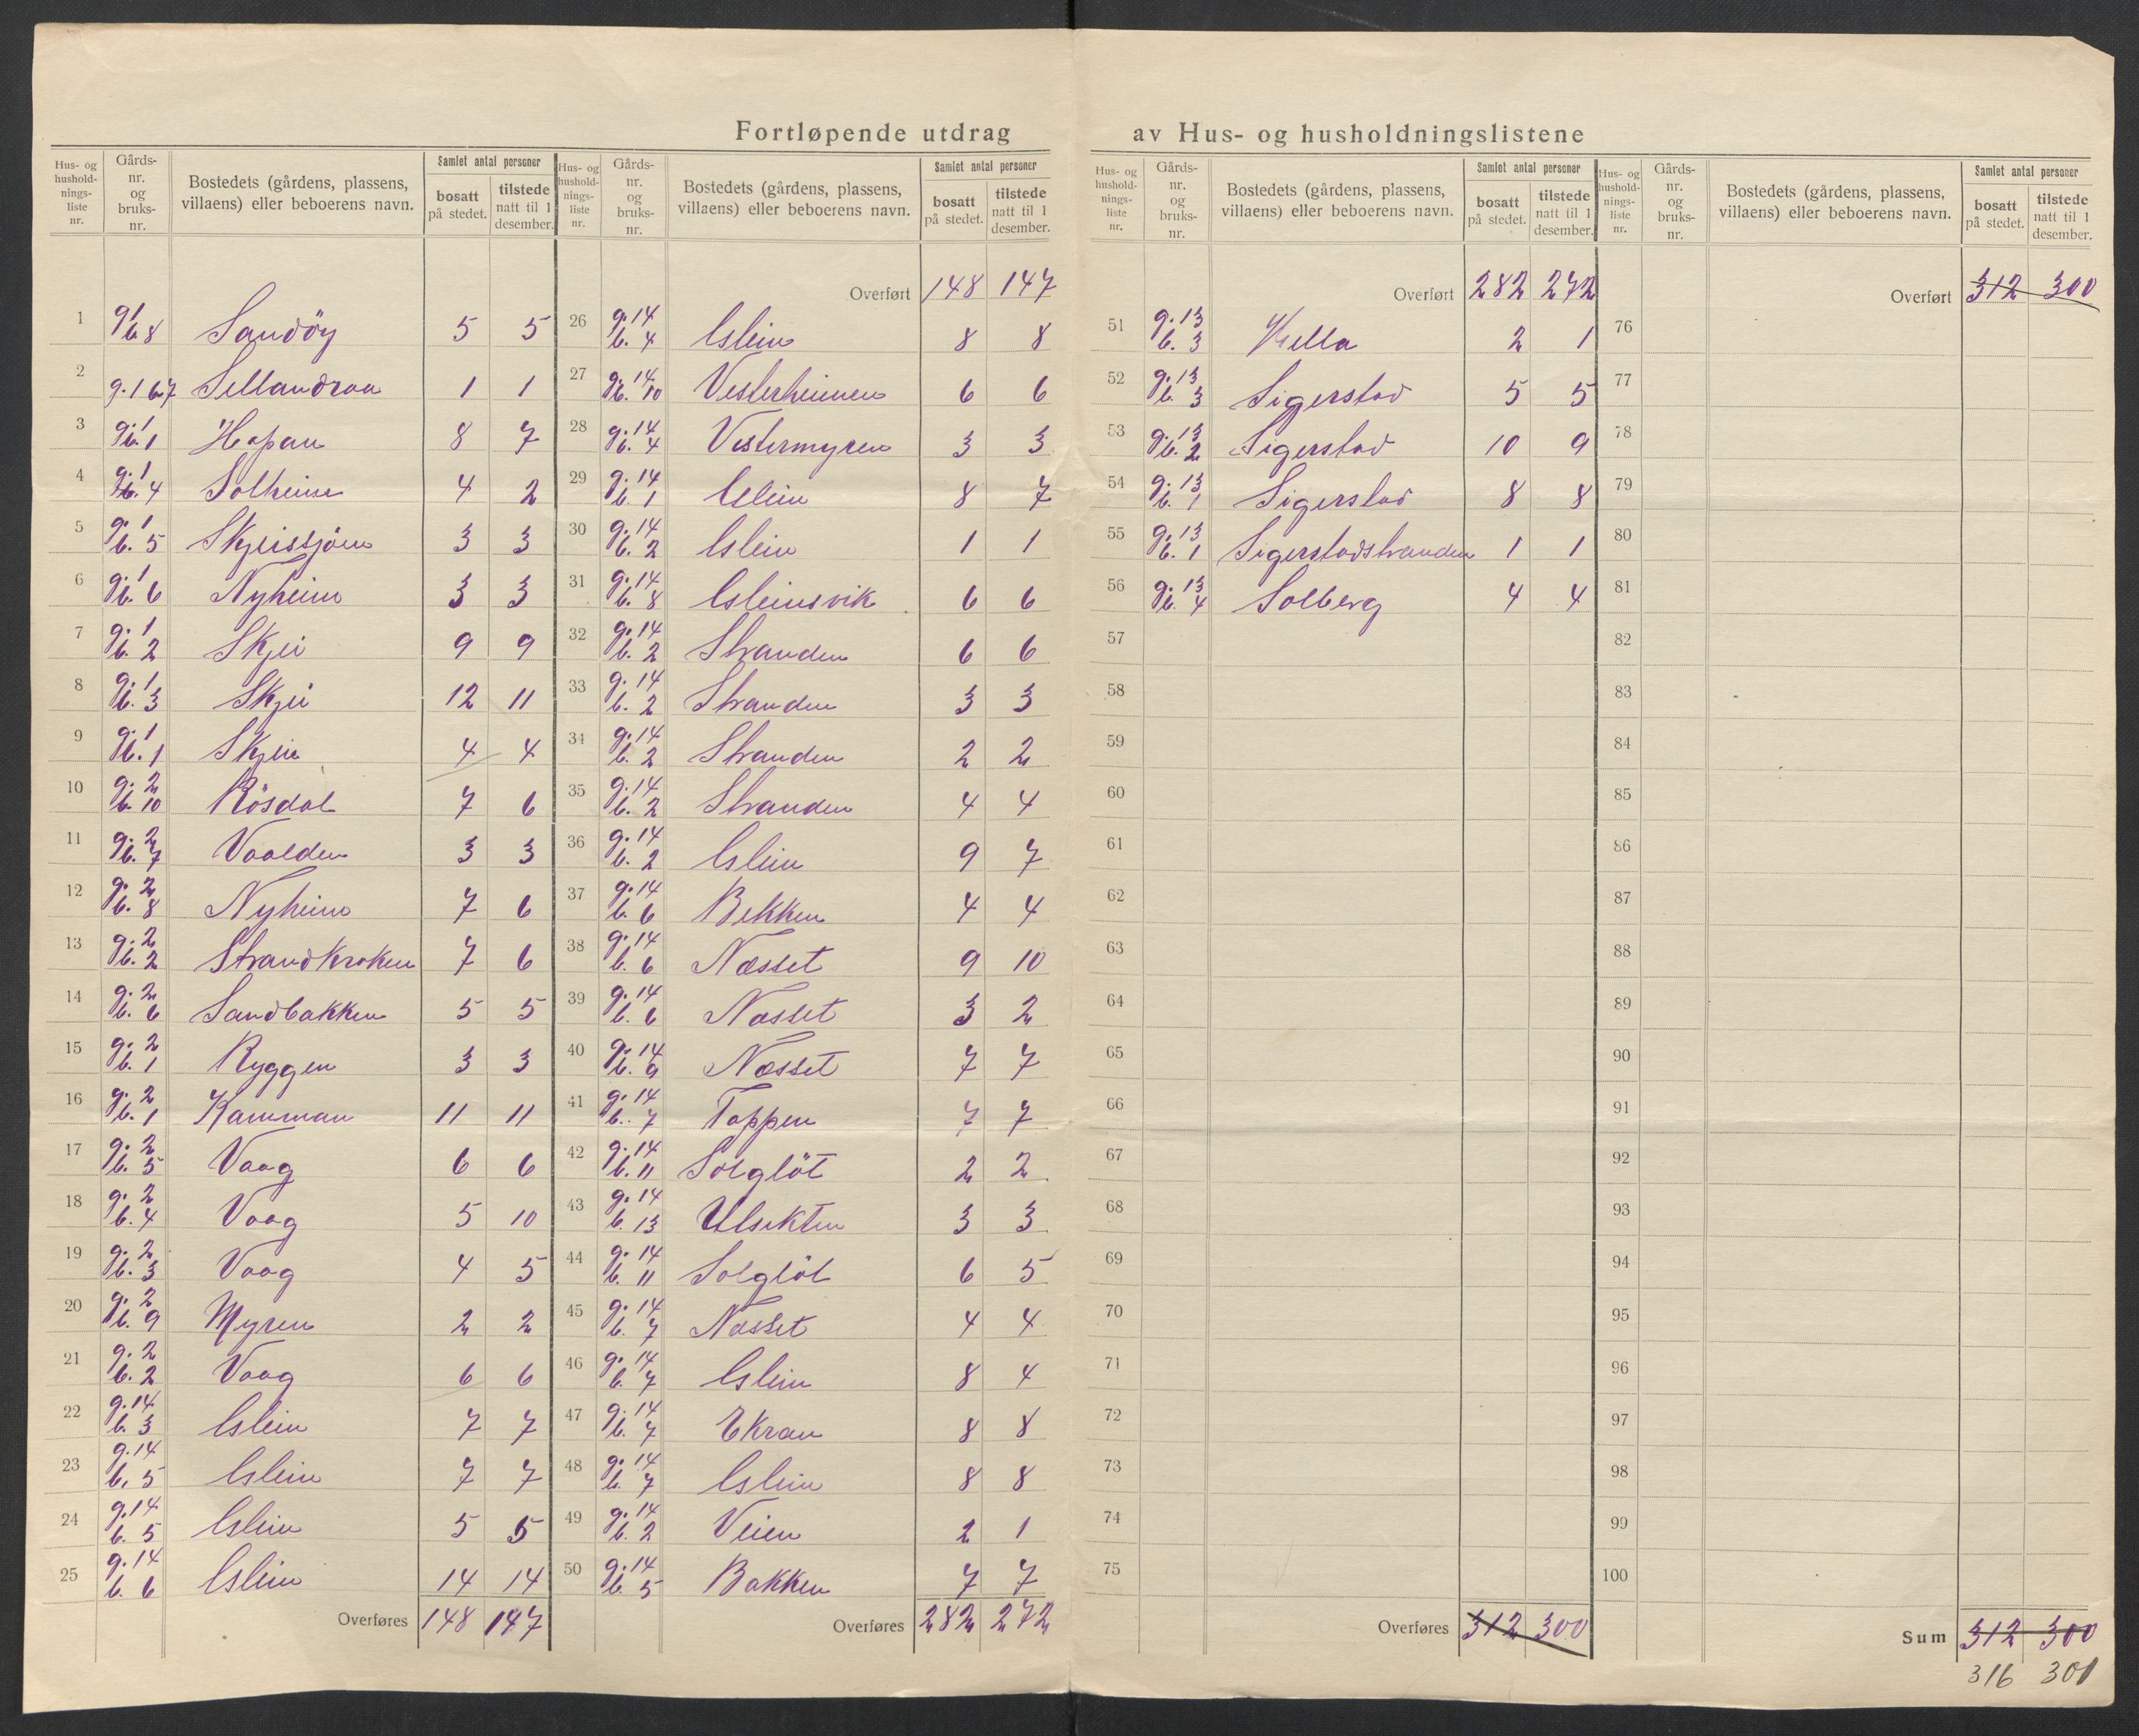 Fortløpende utdrag av Hus- og husholdningslistene
Hus- og husholdningsliste nr. | Gårdsnr. og bruksnr. | Bostedets (gårdens, plassens, villaens) eller beboerens navn. | Samlet antal personer bosatt på stedet. | tilstede natt til 1 desember.
1 g. 1 b. 8 Sandöy 5 5
2 g. 1 b. 7 Sellandraa 1 1
3 g. 1 b. 1 Hopan 8 7
4 g. 1 b. 4 Solheim 4 2
5 g. 1 b. 5 Skjeissjöen 3 3
6 g. 1 b. 6 Nyheim 3 3
7 g. 1 b. 2 Skjei 9 9
8 g. 1 b. 3 Skjei 12 11
9 g. 1 b. 1 Skjei 4 4
10 g. 2 b. 10 Rösdal 7 6
11 g. 2 b. 7 Vaalden 3 3
12 g. 2 b. 8 Nyheim 7 6
13 g. 2 b. 2 Strandkroken 7 6
14 g. 2 b. 6 Sandbakken 5 5
15 g. 2 b. 1 Ryggen 3 3
16 g. 2 b. 1 Kamman 11 11
17 g. 2 b. 5 Vaag 6 6
18 g. 2 b. 4 Vaag 5 10
19 g. 2 b. 3 Vaag 4 5
20 g. 2 b. 9 Myren 2 2
21 g. 2 b. 2 Vaag 6 6
22 g. 14 b. 3 Eslein 7 7
23 g. 14 b. 5 Eslein 7 7
24 g. 14 b. 5 Eslein 5 5
25 g. 14 b. 6 Eslein 14 14
Overføres 148 147
Hus- og husholdningsliste nr. | Gårdsnr. og bruksnr. | Bostedets (gårdens, plassens, villaens) eller beboerens navn. | Samlet antal personer bosatt på stedet. | tilstede natt til 1 desember.
Overført 148 147
26 g. 14 b. 4 Eslein 8 8
27 g. 14 b. 10 Vesterheimen 6 6
28 g. 14 b. 4 Vestermyren 3 3
29 g. 14 b. 1 Eslein 8 7
30 g. 14 b. 2 Eslein 1 1
31 g. 14 b. 8 Esleinsvik 6 6
32 g. 14 b. 2 Stranden 6 6
33 g. 14 b. 2 Stranden 3 3
34 g. 14 b. 2 Stranden 2 2
35 g. 14 b. 2 Stranden 4 4
36 g. 14 b. 2 Eslein 9 7
37 g. 14 b. 6 Bekken 4 4
38 g. 14 b. 6 Næsset 9 10
39 g. 14 b. 6 Næsset 3 2
40 g. 14 b. 9 Næsset 7 7
41 g. 14 b. 7 Toppen 7 7
42 g. 14 b. 11 Solglöt 2 2
43 g. 14 b. 13 Utsikten 3 3
44 g. 14 b. 11 Solglöt 6 5
45 g. 14 b. 7 Næsset 4 4
46 g. 14 b. 7 Eslein 8 4
47 g. 14 b. 7 Ekran 8 8
48 g. 14 b. 7 Eslein 8 8
49 g. 14 b. 2 Veien 2 1
50 g. 14 b. 5 Bakken 7 7
Overføres 282 272
Hus- og husholdningsliste nr. | Gårdsnr. og bruksnr. | Bostedets (gårdens, plassens, villaens) eller beboerens navn. | Samlet antal personer bosatt på stedet. | tilstede natt til 1 desember.
Overført 282 272
51 g. 13 b. 3 Kella 2 1
52 g. 13 b. 3 Sigerstad 5 5
53 g. 13 b. 2 Sigerstad 10 9
54 g. 13 b. 1 Sigerstad 8 8
55 g. 13 b. 1 Sigerstadstranden 1 1
56 g. 13 b. 4 Solberg 4 4
57
58
59
60
61
62
63
64
65
66
67
68
69
70
71
72
73
74
75
Overføres 312 300
Hus- og husholdningsliste nr. | Gårdsnr. og bruksnr. | Bostedets (gårdens, plassens, villaens) eller beboerens navn. | Samlet antal personer bosatt på stedet. | tilstede natt til 1 desember.
Overført 312 300
76
77
78
79
80
81
82
83
84
85
86
87
88
89
90
91
92
93
94
95
96
97
98
99
100
Sum 312 300
316 301